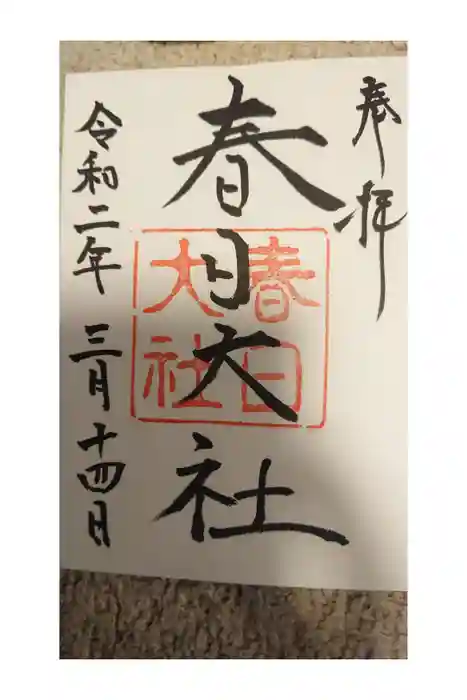 奉拝
春日大社
春日
大社
令和二年 三月十四日